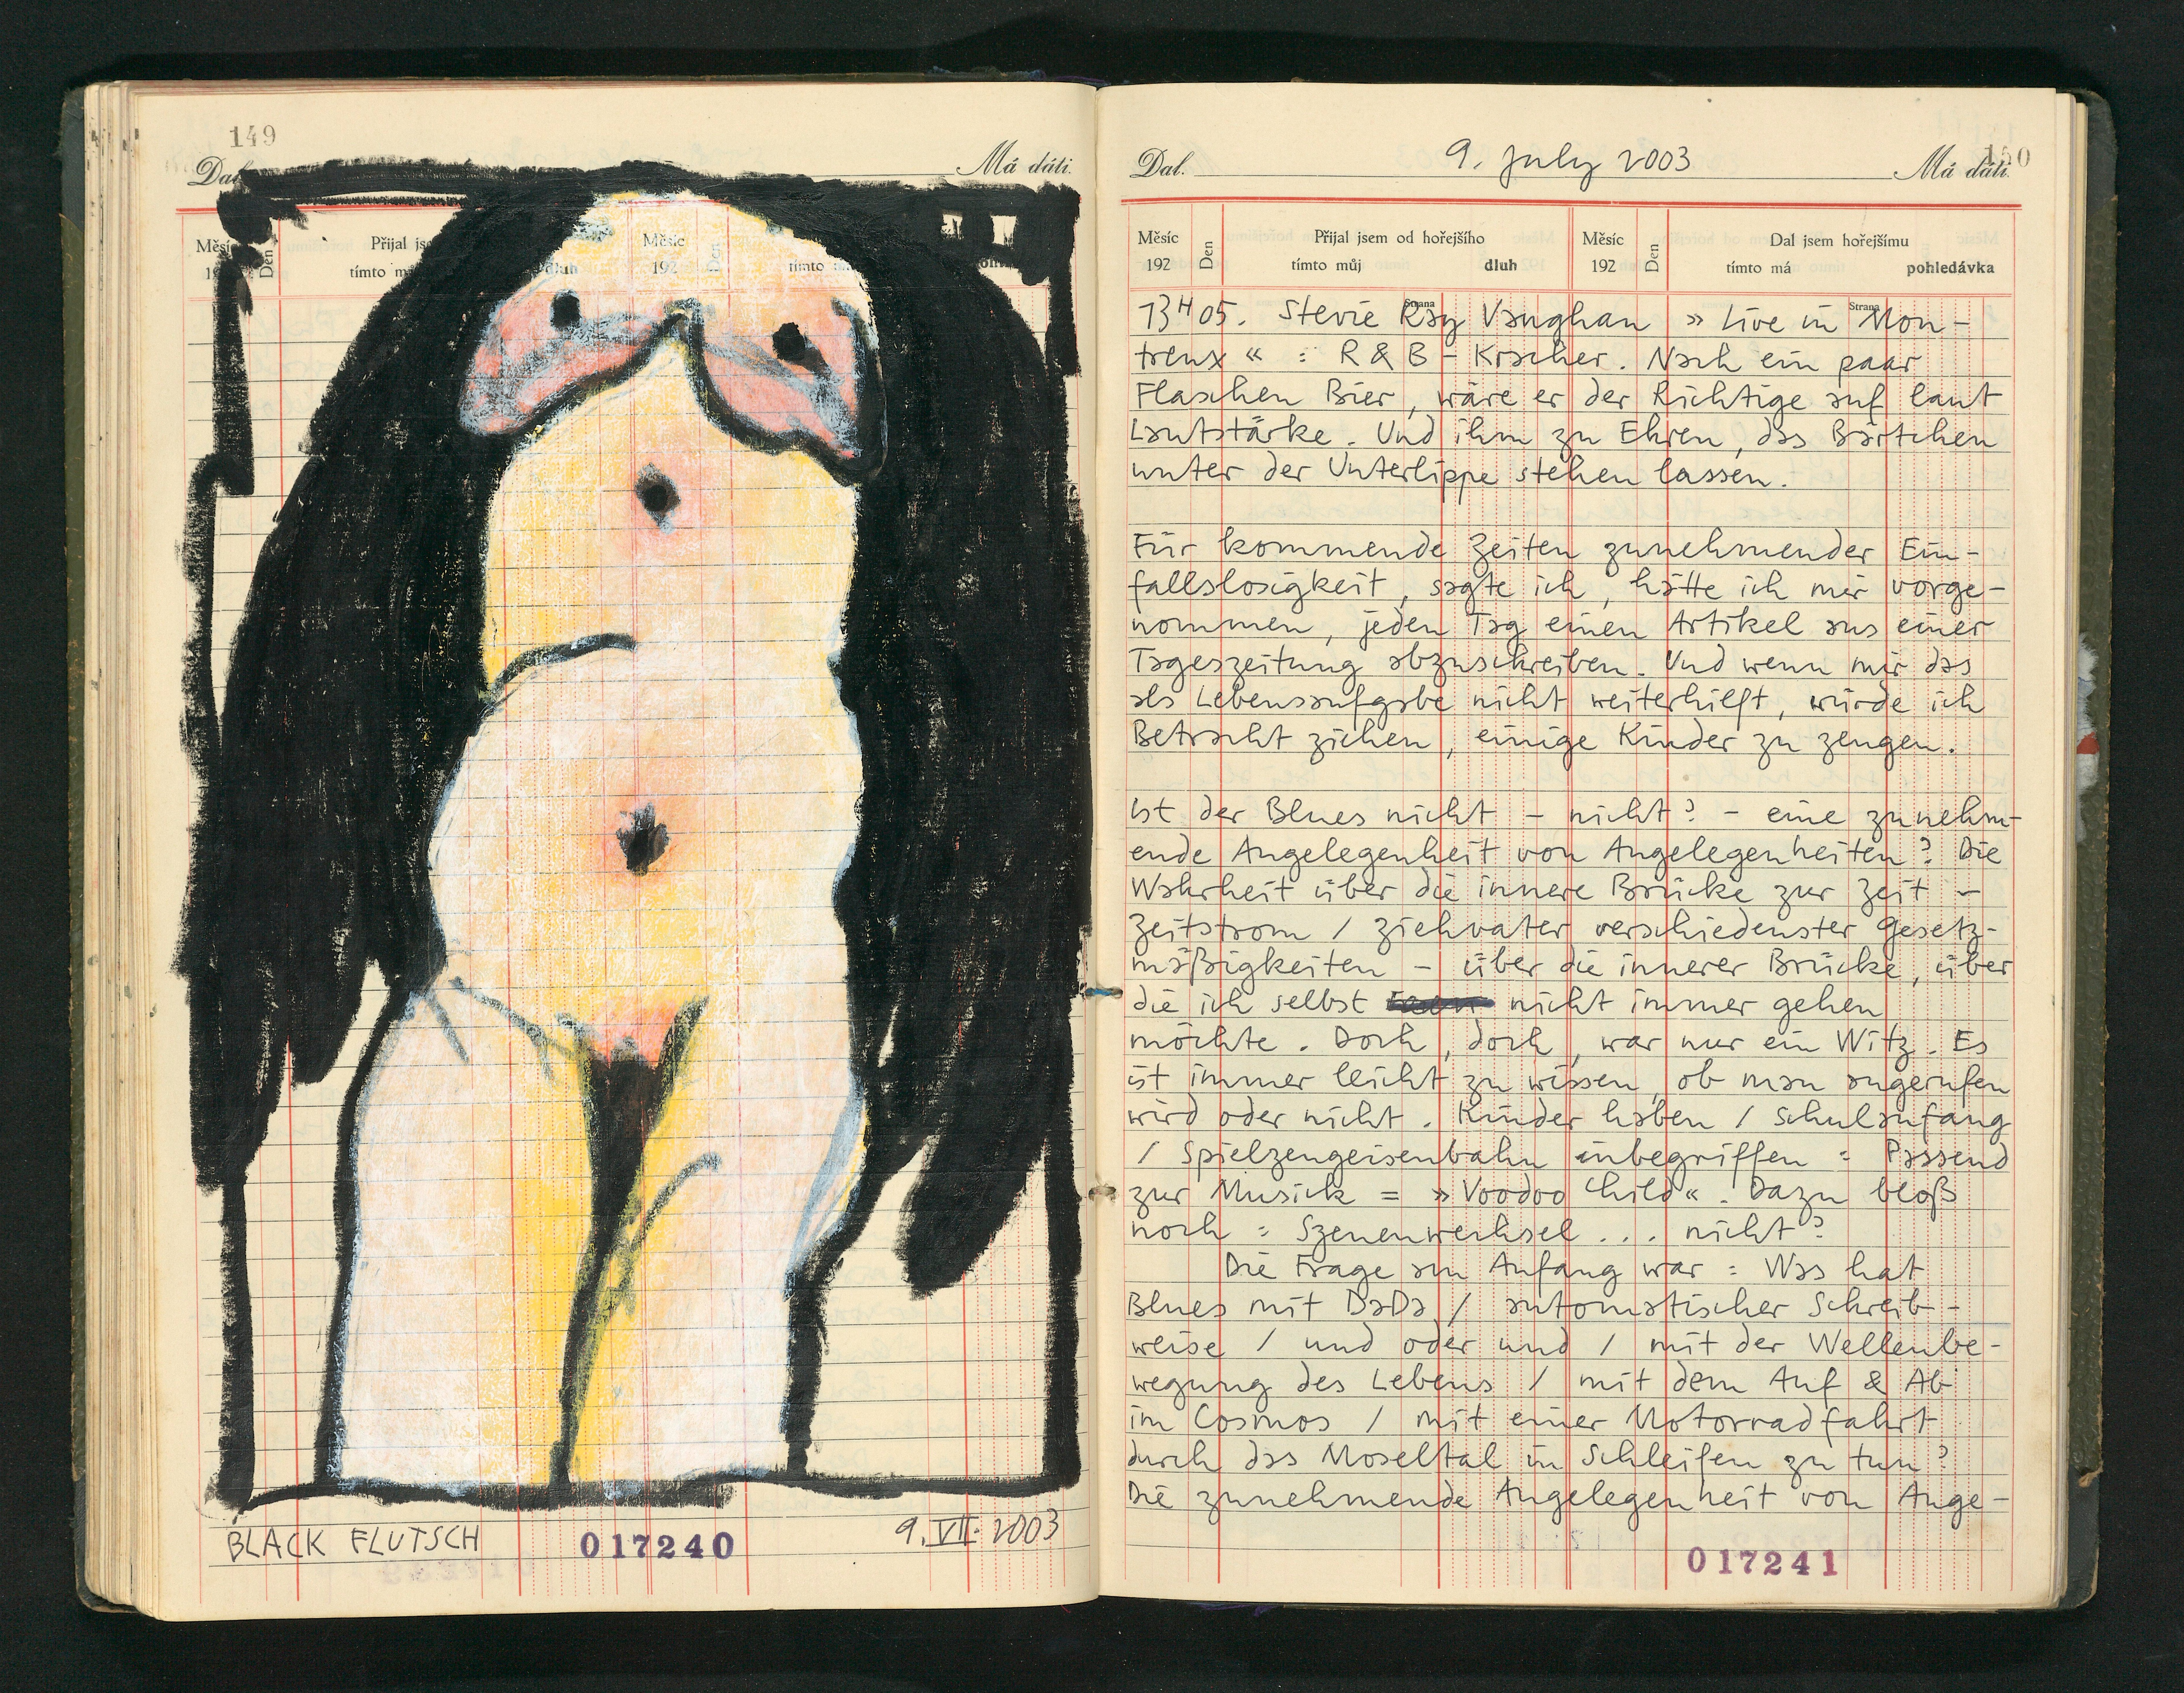 149
Dal. Má dáti.
Měsíc Den Přijal jsem Měsíc Den
192 tímto můj dluh 192 tímto má
BLACK FLUTSCH 017240 9.VII.2003
150
Dal. 9. July 2003 Má dáti.
Měsíc Den Přijal jsem od hořejšího Měsíc Den Dal jsem hořejšímu
192 tímto můj dluh 192 tímto má pohledávka
Strana Strana
13H05. Stevie Ray Vaughan » Live in Mon-
treux « : R & B - Kracher. Nach ein paar
Flaschen Bier, wäre er der Richtige auf laut
Lautstärke. Und ihm zu Ehren, das Bärtchen
unter der Unterlippe stehen lassen.
Für kommende Zeiten zunehmender Ein-
fallslosigkeit, sagte ich, hätte ich mir vorge-
nommen, jeden Tag einen Artikel aus einer
Tageszeitung abzuschreiben. Und wenn mir das
als Lebensaufgabe nicht weiterhilft, würde ich
Betracht ziehen, einige Kinder zu zeugen.
Ist der Blues nicht - nicht? - eine zunehm-
ende Angelegenheit von Angelegenheiten? Die
Wahrheit über die innere Brücke zur Zeit -
Zeitstrom / Ziehvater verschiedenster Gesetz-
mäßigkeiten - über die innerer Brücke, über
die ich selbst nicht immer gehen
möchte. Doch, doch, war nur ein Witz. Es
ist immer leicht zu wissen, ob man angerufen
wird oder nicht. Kinder haben / Schulanfang
/ Spielzeugeisenbahn inbegriffen : Passend
zur Musick = » Voodoo Child «. Dazu bloß
noch : Szenenwechsel ... nicht?
Die Frage am Anfang war : Was hat
Blues mit DaDa / automatischer Schreib-
weise / und oder und / mit der Wellenbe-
wegung des Lebens / mit dem Auf & Ab
im Cosmos / mit einer Motorradfahrt
durch das Moseltal in Schleifen zu tun?
Die zunehmende Angelegenheit von Ange-
017241